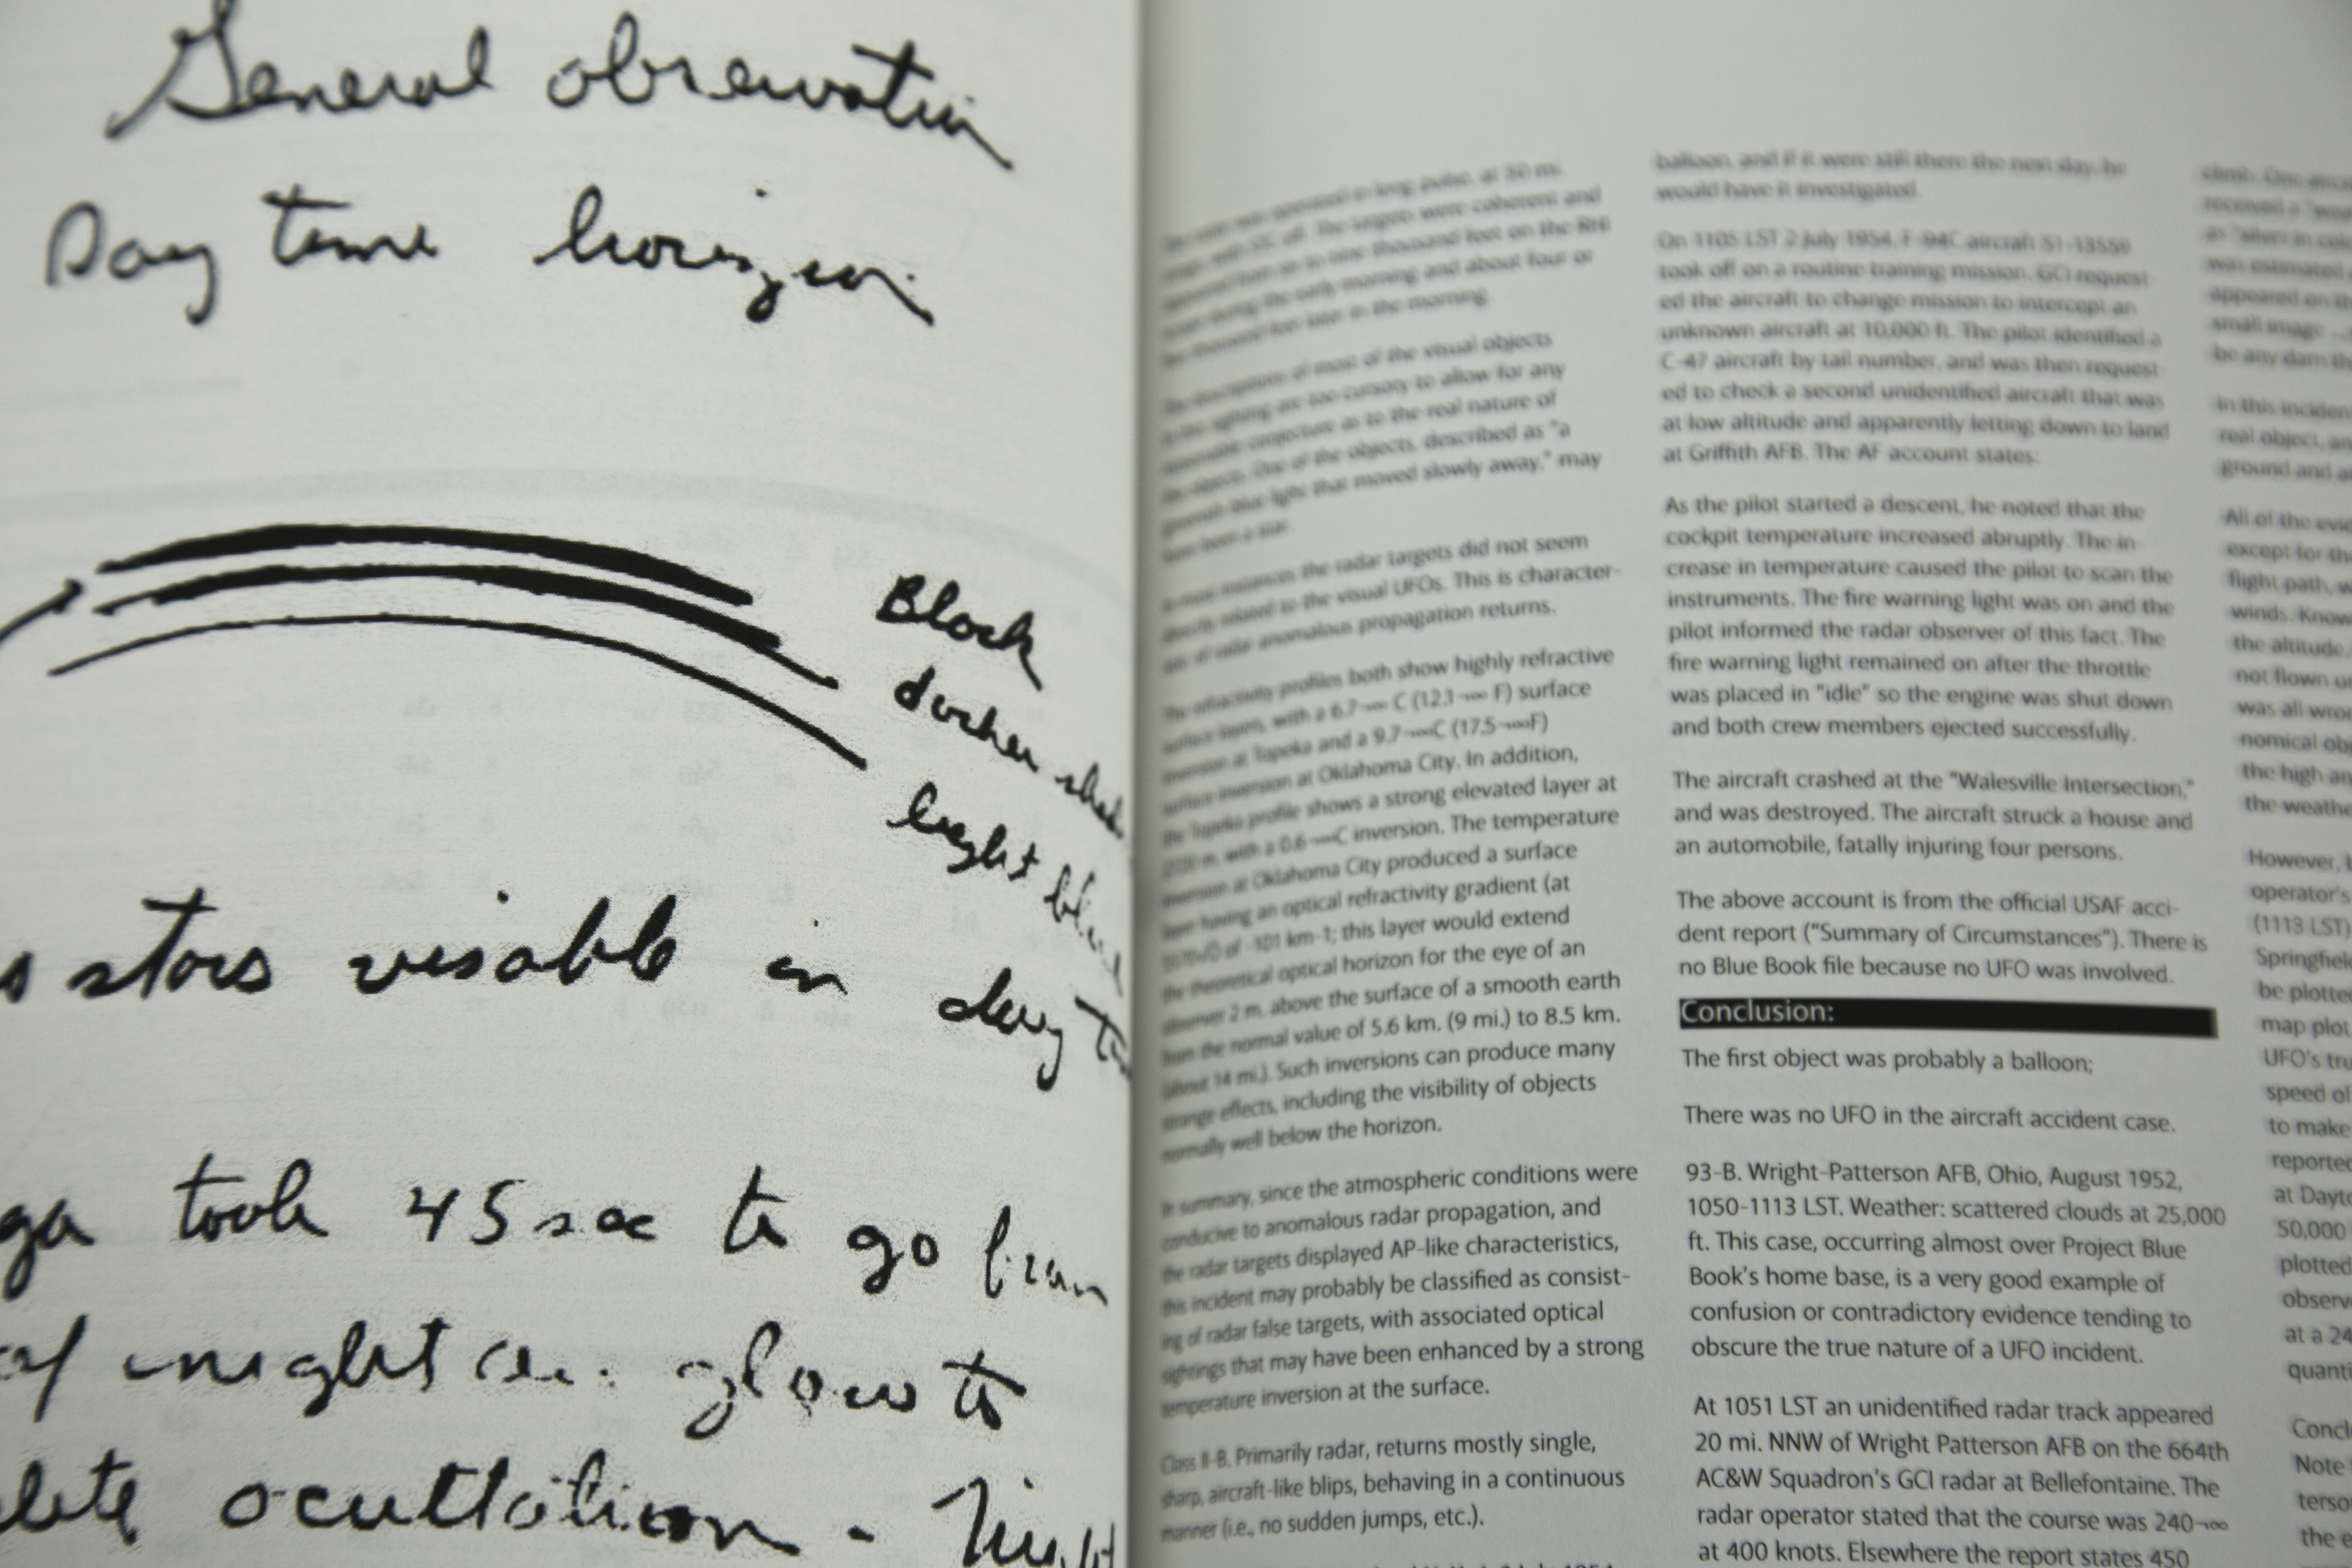 General obsrevation
Day time horizon
Black
darker
light blue
stars visable in day
took 45 sec to go from
of night glow to
ocultation - Night
operated in long pulse, at 50 mi.
The targets were coherent and
thousand feet on the RHI
during the early morning and about four or
later in the morning.
descriptions of most of the visual objects
sighting are too cursory to allow for any
conjecture as to the real nature of
the objects. One of the objects, described as "a
light that moved slowly away," may
have been a star.
instances the radar targets did not seem
directly related to the visual UFOs. This is character-
of radar anomalous propagation returns.
The refractivity profiles both show highly refractive
surface layers, with a 6.7¬∞ C (12.1¬∞ F) surface
inversion at Topeka and a 9.7¬∞C (17.5¬∞F)
surface inversion at Oklahoma City. In addition,
the Topeka profile shows a strong elevated layer at
with a 0.6¬∞C inversion. The temperature
inversion at Oklahoma City produced a surface
layer having an optical refractivity gradient (at
of -101 km-1; this layer would extend
the theoretical optical horizon for the eye of an
observer 2 m. above the surface of a smooth earth
from the normal value of 5.6 km. (9 mi.) to 8.5 km.
(about 14 mi.). Such inversions can produce many
strange effects, including the visibility of objects
normally well below the horizon.
In summary, since the atmospheric conditions were
conducive to anomalous radar propagation, and
the radar targets displayed AP-like characteristics,
this incident may probably be classified as consist-
ing of radar false targets, with associated optical
sightings that may have been enhanced by a strong
temperature inversion at the surface.
Class II-B. Primarily radar, returns mostly single,
sharp, aircraft-like blips, behaving in a continuous
manner (i.e., no sudden jumps, etc.).
balloon, and if it were still there the next day, he
would have it investigated.
On 1105 LST 2 July 1954, F-94C aircraft 51-13559
took off on a routine training mission. GCI request-
ed the aircraft to change mission to intercept an
unknown aircraft at 10,000 ft. The pilot identified a
C-47 aircraft by tail number, and was then request-
ed to check a second unidentified aircraft that was
at low altitude and apparently letting down to land
at Griffith AFB. The AF account states:
As the pilot started a descent, he noted that the
cockpit temperature increased abruptly. The in-
crease in temperature caused the pilot to scan the
instruments. The fire warning light was on and the
pilot informed the radar observer of this fact. The
fire warning light remained on after the throttle
was placed in "idle" so the engine was shut down
and both crew members ejected successfully.
The aircraft crashed at the "Walesville Intersection,"
and was destroyed. The aircraft struck a house and
an automobile, fatally injuring four persons.
The above account is from the official USAF acci-
dent report ("Summary of Circumstances"). There is
no Blue Book file because no UFO was involved.
Conclusion:
The first object was probably a balloon;
There was no UFO in the aircraft accident case.
93-B. Wright-Patterson AFB, Ohio, August 1952,
1050-1113 LST. Weather: scattered clouds at 25,000
ft. This case, occurring almost over Project Blue
Book's home base, is a very good example of
confusion or contradictory evidence tending to
obscure the true nature of a UFO incident.
At 1051 LST an unidentified radar track appeared
20 mi. NNW of Wright Patterson AFB on the 664th
AC&W Squadron's GCI radar at Bellefontaine. The
radar operator stated that the course was 240¬∞
at 400 knots. Elsewhere the report states 450
climb. One
received a
as "silver in
was estimated
appeared on
small image ...
be any darn
In this inciden
real object, an
ground and
All of the evi
except for the
flight path,
winds. Know
the altitude.
not flown
was all
nomical
the high an
the weathe
However,
operator's
(1113 LST)
Springfield
be plotted
map plot
UFO's tru
speed of
to make
reported
at Dayto
50,000
plotted
observe
at a 24
quanti
Concl
Note
terso
the